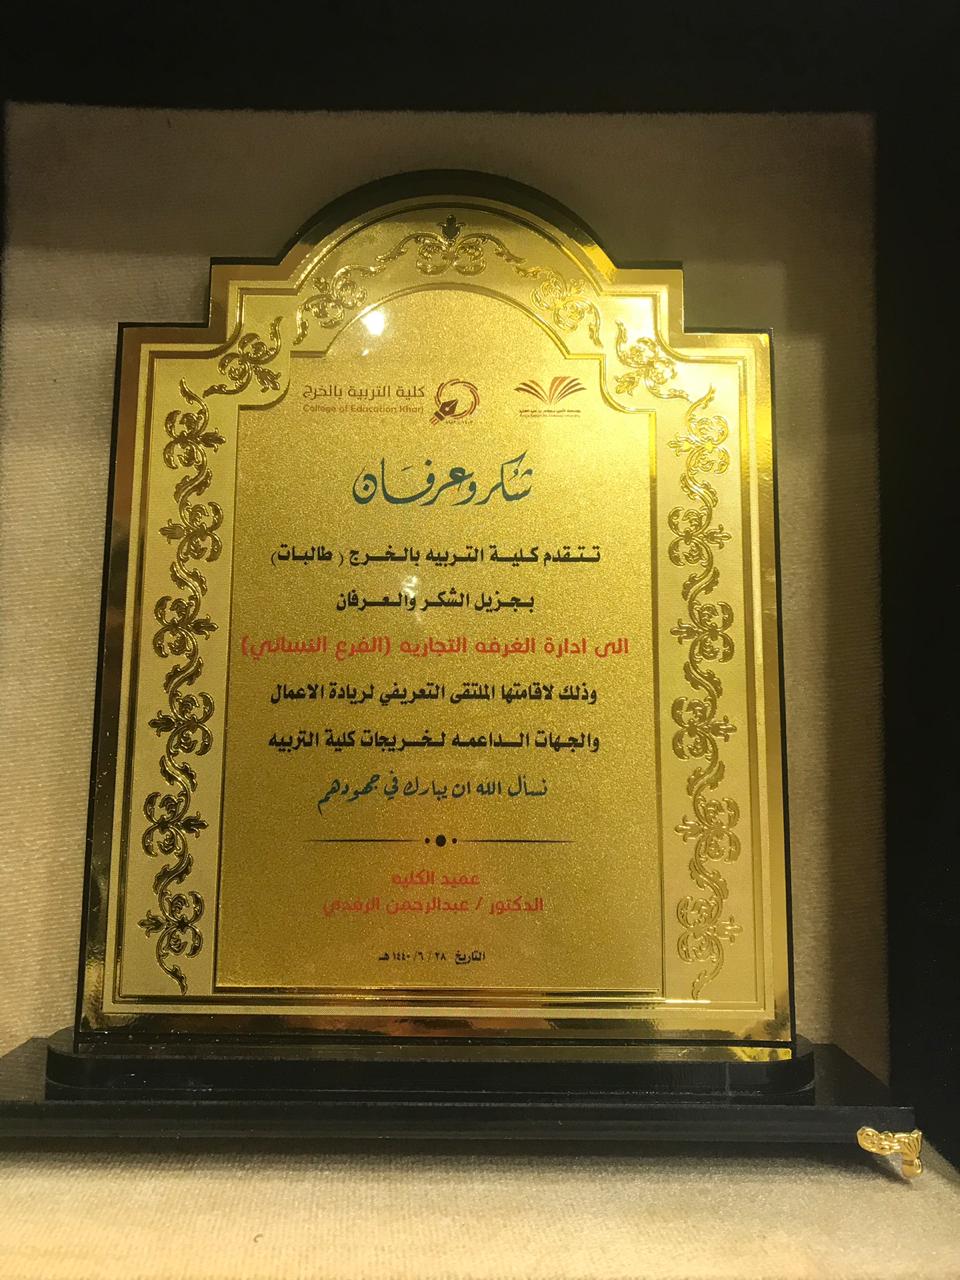 كلية التربية بالخرج
College of Education Kharj
شكر وعرفان
تتقدم كلية التربيه بالخرج ( طالبات)
بجزيل الشكر والعرفان
الى ادارة الغرفه التجاريه (الفرع النسائي)
وذلك لاقامتها الملتقى التعريفي لريادة الاعمال
والجهات الداعمه لخريجات كلية التربيه
نسأل الله ان يبارك في جهودهم
عميد الكليه
الدكتور / عبدالرحمن الرفدي
التاريخ ٢٨ /٦ /١٤٤٠ هـ